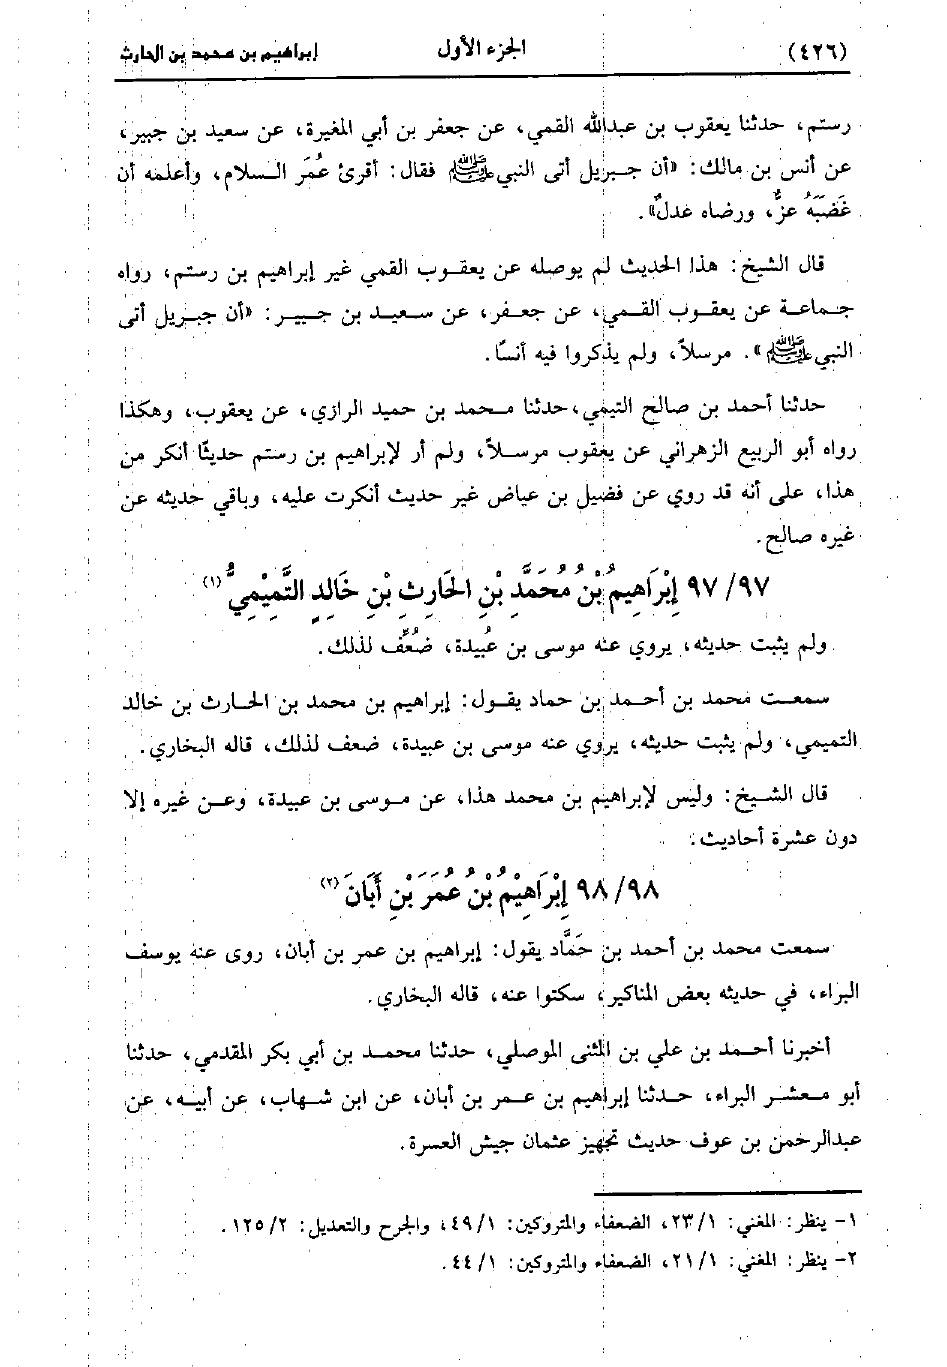 (٤٢٦) الجزء الأول إبراهيم بن محمد بن الحارث
رستم، حدثنا يعقوب بن عبدالله القمي، عن جعفر بن أبي المغيرة، عن سعيد بن جبير،
عن أنس بن مالك: «أن جبريل أتى النبي ﷺ فقال: أقرئ عُمَر السلام، وأعلمه أن
غَضَبَهُ عزٌّ، ورضاه عدلٌ».
قال الشيخ: هذا الحديث لم يوصله عن يعقوب القمي غير إبراهيم بن رستم، رواه
جماعة عن يعقوب القمي، عن جعفر، عن سعيد بن جبير: «أن جبريل أتى
النبي ﷺ». مرسلاً، ولم يذكروا فيه أنسًا.
حدثنا أحمد بن صالح التيمي، حدثنا محمد بن حميد الرازي، عن يعقوب، وهكذا
رواه أبو الربيع الزهراني عن يعقوب مرسلاً، ولم أر لإبراهيم بن رستم حديثًا أنكر من
هذا، على أنه قد روي عن فضيل بن عياض غير حديث أنكرت عليه، وباقي حديثه عن
غيره صالح.
٩٧/ ٩٧ إِبْرَاهِيمُ بْنُ مُحَمَّدِ بْنِ الحَارِثِ بْنِ خَالِدٍ التَّمِيْمِيُّ(١)
ولم يثبت حديثه، يروي عنه موسى بن عُبيدة، ضُعِّف لذلك.
سمعت محمد بن أحمد بن حماد يقول: إبراهيم بن محمد بن الحارث بن خالد
التميمي، ولم يثبت حديثه، يروي عنه موسى بن عبيدة، ضعف لذلك، قاله البخاري.
قال الشيخ: وليس لإبراهيم بن محمد هذا، عن موسى بن عبيدة، وعن غيره إلا
دون عشرة أحاديث.
٩٨/ ٩٨ إِبْرَاهِيْمُ بْنُ عُمَرَ بْنِ أَبَانَ(٢)
سمعت محمد بن أحمد بن حَمَّاد يقول: إبراهيم بن عمر بن أبان، روى عنه يوسف
البراء، في حديثه بعض المناكير، سكتوا عنه، قاله البخاري.
أخبرنا أحمد بن علي بن المثنى الموصلي، حدثنا محمد بن أبي بكر المقدمي، حدثنا
أبو معشر البراء، حدثنا إبراهيم بن عمر بن أبان، عن ابن شهاب، عن أبيه، عن
عبدالرحمن بن عوف حديث تجهيز عثمان جيش العسرة.
١- ينظر: المغني: ٢٣/١، الضعفاء والمتروكين: ٤٩/١، والجرح والتعديل: ١٢٥/٢.
٢- ينظر: المغني: ٢١/١، الضعفاء والمتروكين: ٤٤/١.